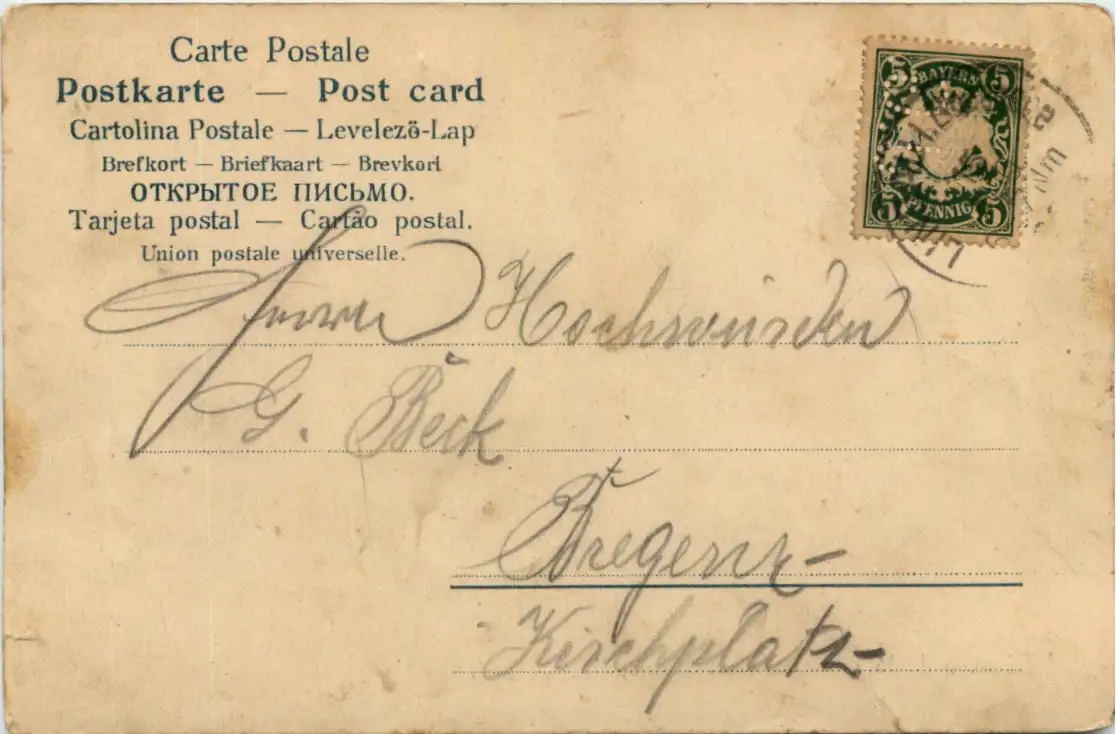 Carte Postale
Postkarte — Post card
Cartolina Postale — Levelező-Lap
Brefkort — Briefkaart — Brevkort
ОТКРЫТОЕ ПИСЬМО.
Tarjeta postal — Cartão postal.
Union postale universelle.
5 BAYERN 5
5 PFENNIG 5
Herrn Hochwürden
G. Beck
Bregenz-
Kirchplatz-